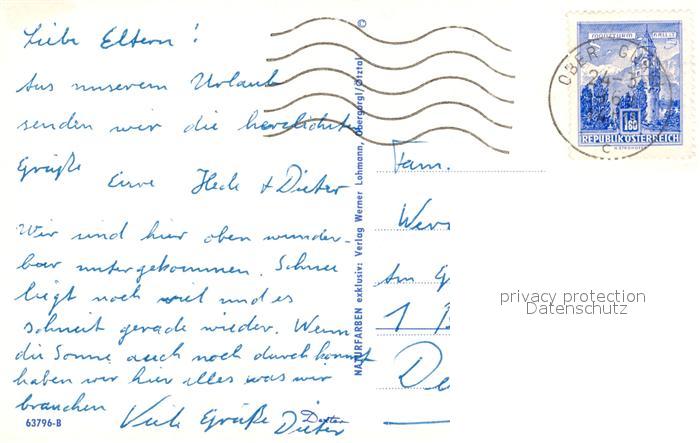 Liebe Eltern!
Aus unserem Urlaub
senden wir die herzlichste
Grüße Eure Hede + Dieter
Wir sind hier oben wunder-
bar untergekommen. Schnee
liegt noch viel und es
schneit gerade wieder. Wenn
die Sonne auch noch durch kommt
haben wir hier alles was wir
brauchen
Viele Grüße Dieter
63796-B
©
NATURFARBEN exklusiv: Verlag Werner Lohmann, Obergurgl/Ötztal
Fam.
Am
1
De
OBER GU
24
c
MÜNZTURM HALL I.T.
S 1.60
REPUBLIK ÖSTERREICH
privacy protection
Datenschutz